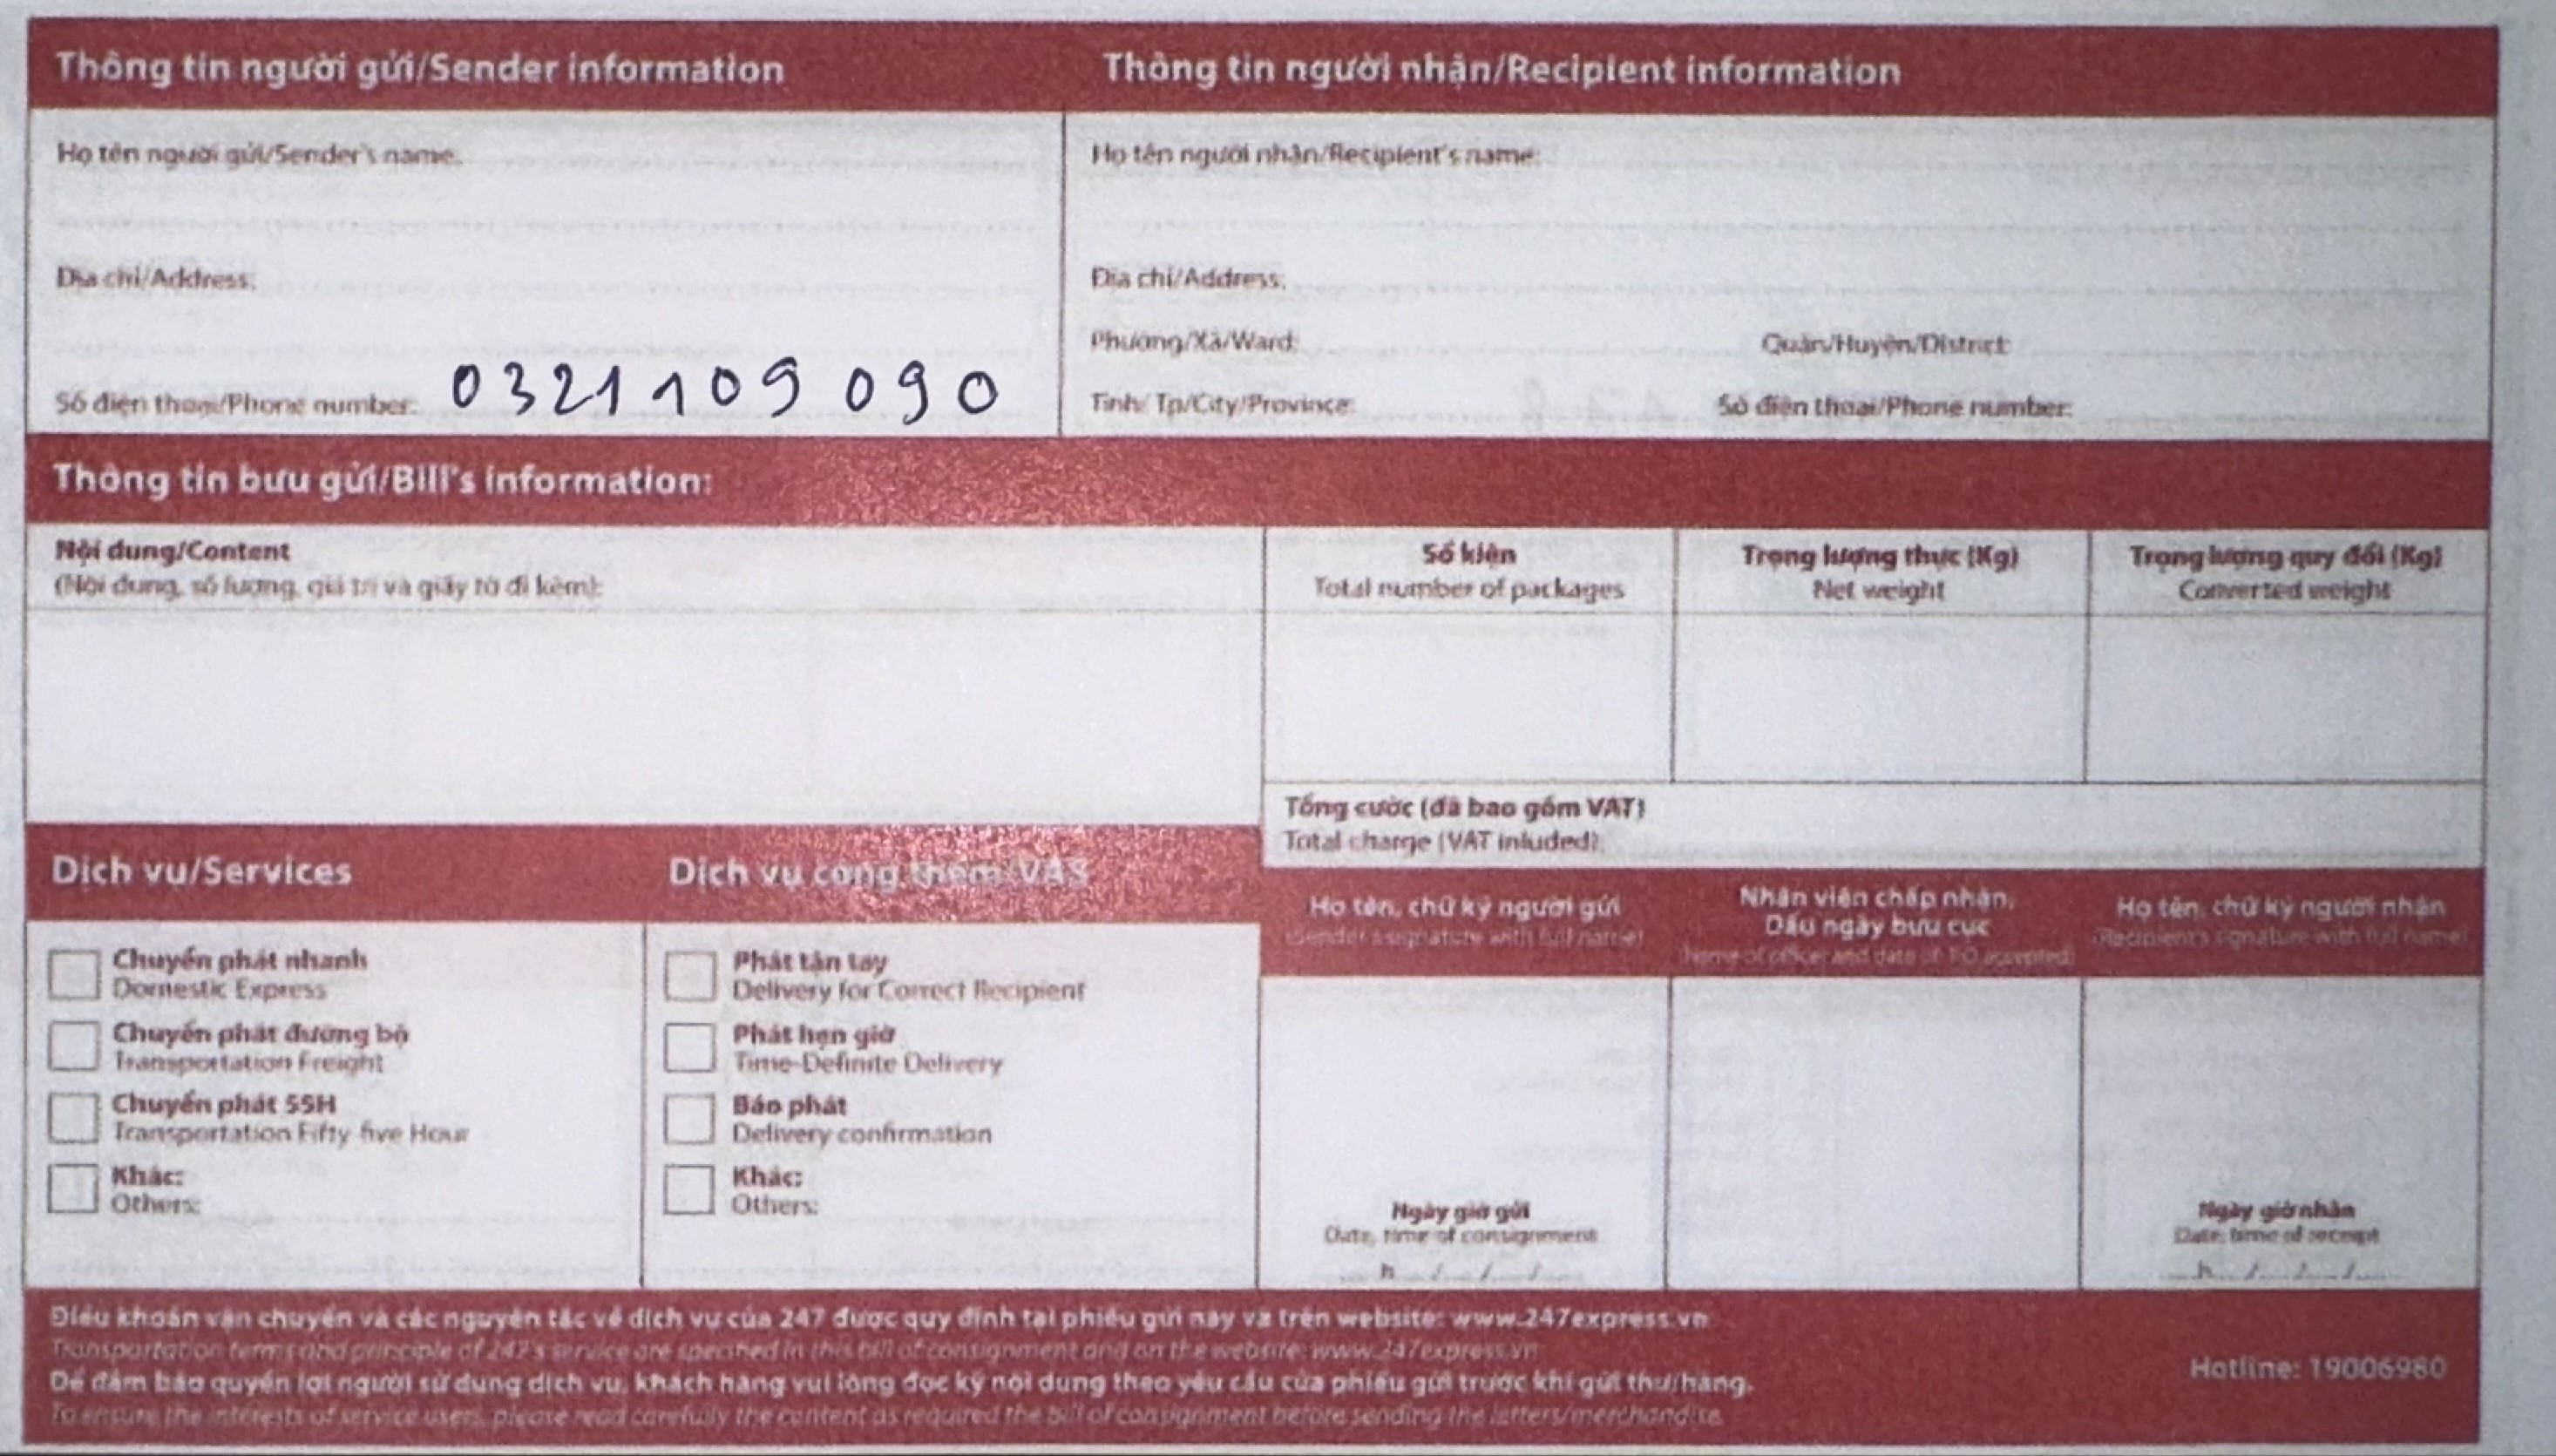 Thông tin người gửi/Sender information
Thông tin người nhận/Recipient information
Họ tên người gửi/Sender's name:
Địa chỉ/Address:
Số điện thoại/Phone number: 0321109090
Họ tên người nhận/Recipient's name:
Địa chỉ/Address:
Phường/Xã/Ward: Quận/Huyện/District:
Tỉnh/ Tp/City/Province: Số điện thoại/Phone number:
Thông tin bưu gửi/Bill's information:
Nội dung/Content
(Nội dung, số lượng, giá trị và giấy tờ đi kèm):
Số kiện
Total number of packages
Trọng lượng thực (Kg)
Net weight
Trọng lượng quy đổi (Kg)
Converted weight
Tổng cước (đã bao gồm VAT)
Total charge (VAT inluded):
Dịch vụ/Services
Chuyển phát nhanh
Domestic Express
Chuyển phát đường bộ
Transportation Freight
Chuyển phát 55H
Transportation Fifty-five Hour
Khác:
Others:
Dịch vụ cộng thêm/VAS
Phát tận tay
Delivery for Correct Recipient
Phát hẹn giờ
Time-Definite Delivery
Báo phát
Delivery confirmation
Khác:
Others:
Họ tên, chữ ký người gửi
(Sender's signature with full name)
Ngày giờ gửi
Date, time of consignment
h / / /
Nhân viên chấp nhận,
Dấu ngày bưu cục
Name of officer and date of P.O accepted)
Họ tên, chữ ký người nhận
(Recipient's signature with full name)
Ngày giờ nhận
Date, time of receipt
h / / /
Điều khoản vận chuyển và các nguyên tắc về dịch vụ của 247 được quy định tại phiếu gửi này và trên website: www.247express.vn
Transportation terms and principle of 247's service are specified in this bill of consignment and on the website: www.247express.vn
Để đảm bảo quyền lợi người sử dụng dịch vụ, khách hàng vui lòng đọc kỹ nội dung theo yêu cầu của phiếu gửi trước khi gửi thư/hàng.
To ensure the interests of service users, please read carefully the content as required the bill of consignment before sending the letters/merchandise.
Hotline: 19006980